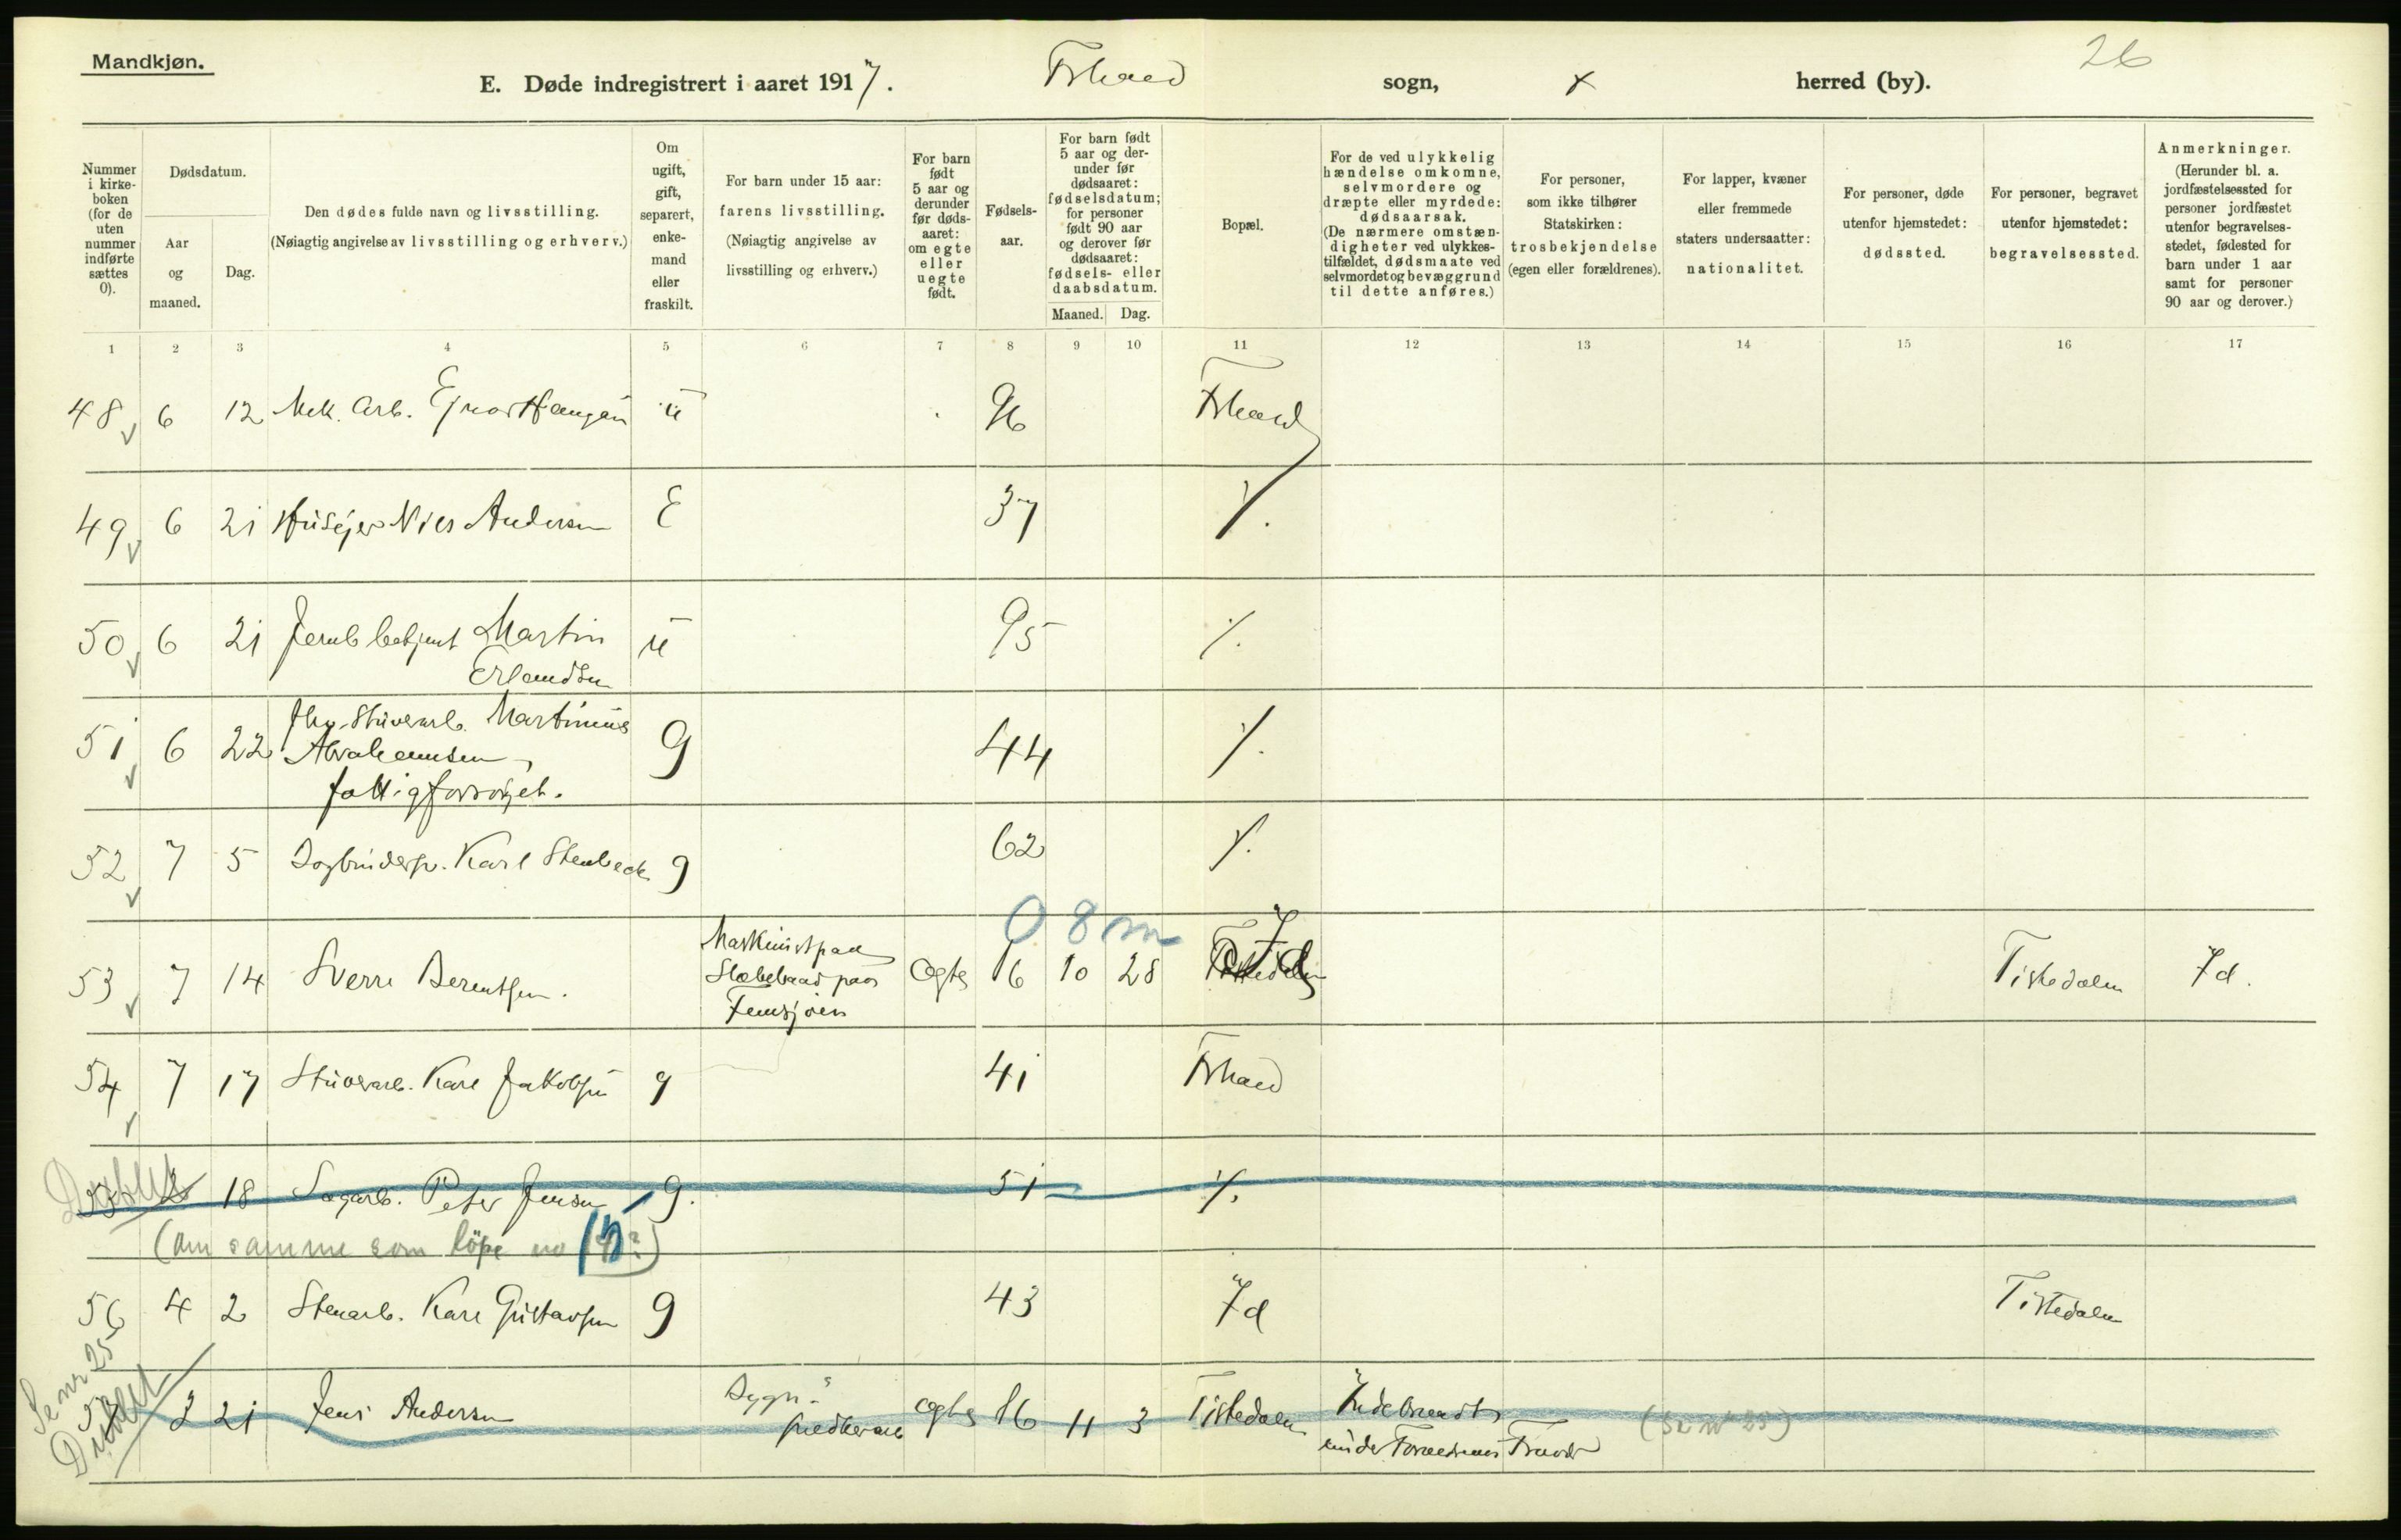 Mandkjøn.
26
E. Døde indregistrert i aaret 1917. Fshald sogn, herred (by).
Nummer i kirke- boken (for de uten nummer indførte sættes 0).
Dødsdatum.
Aar og maaned.
Dag.
Den dødes fulde navn og livsstilling.
(Nøiagtig angivelse av livsstilling og erhverv.)
Om ugift, gift, separert, enke- mand eller fraskilt.
For barn under 15 aar: farens livsstilling.
(Nøiagtig angivelse av livsstilling og erhverv.)
For barn født 5 aar og derunder før døds- aaret: om egte eller uegte født.
Fødsels- aar.
For barn født 5 aar og der- under før dødsaaret: fødselsdatum; for personer født 90 aar og derover før dødsaaret: fødsels- eller daabsdatum.
Maaned. Dag.
Bopæl.
For de ved ulykkelig hændelse omkomne, selvmordere og dræpte eller myrdede: dødsaarsak.
(De nærmere omstæn- digheter ved ulykkes- tilfældet, dødsmaate ved selvmordet og bevæggrund til dette anføres.)
For personer, som ikke tilhører Statskirken: trosbekjendelse (egen eller forældrenes).
For lapper, kvæner eller fremmede staters undersaatter: nationalitet.
For personer, døde utenfor hjemstedet: dødssted.
For personer, begravet utenfor hjemstedet: begravelsessted.
Anmerkninger.
(Herunder bl. a. jordfæstelsessted for personer jordfæstet utenfor begravelses- stedet, fødested for barn under 1 aar samt for personer 90 aar og derover.)
1 2 3 4 5 6 7 8 9 10 11 12 13 14 15 16 17
48 6 12 Mek. Arb. Ejnar Haugen u 96 Fshald
49 6 21 Husejer Nils Andersen E 37 ⁒
50 6 21 Jernb betjent Martin u 95 ⁒
Erlandsen
51 6 22 fhv. Stuverarb. Martinius G 44 ⁒
Abrahamsen,
fattigforsørget.
52 7 5 Bogbindersv. Karl Stenbeck g 62 ⁒
0 8 m
53 7 14 Sverre Berentsen. Maskinist paa Egte 16 10 28 Id Tistedalen Id.
Slæbebaad paa
Femsjøen
54 7 17 Stuverarb. Karl Jakobsen g 41 Fshald
Dublet
55 2 18 Sagarb. Peter Jensen g. 51 ⁒
(Om samme som löpe no 15?)
56 4 2 Stenarb. Karl Gustavsen g 43 Id Tistedalen
Se nr 25
Dublet
57 3 21 Jens Andersen Egte 16 11 3 Tistedalen Indebrændt (Se nr 25)